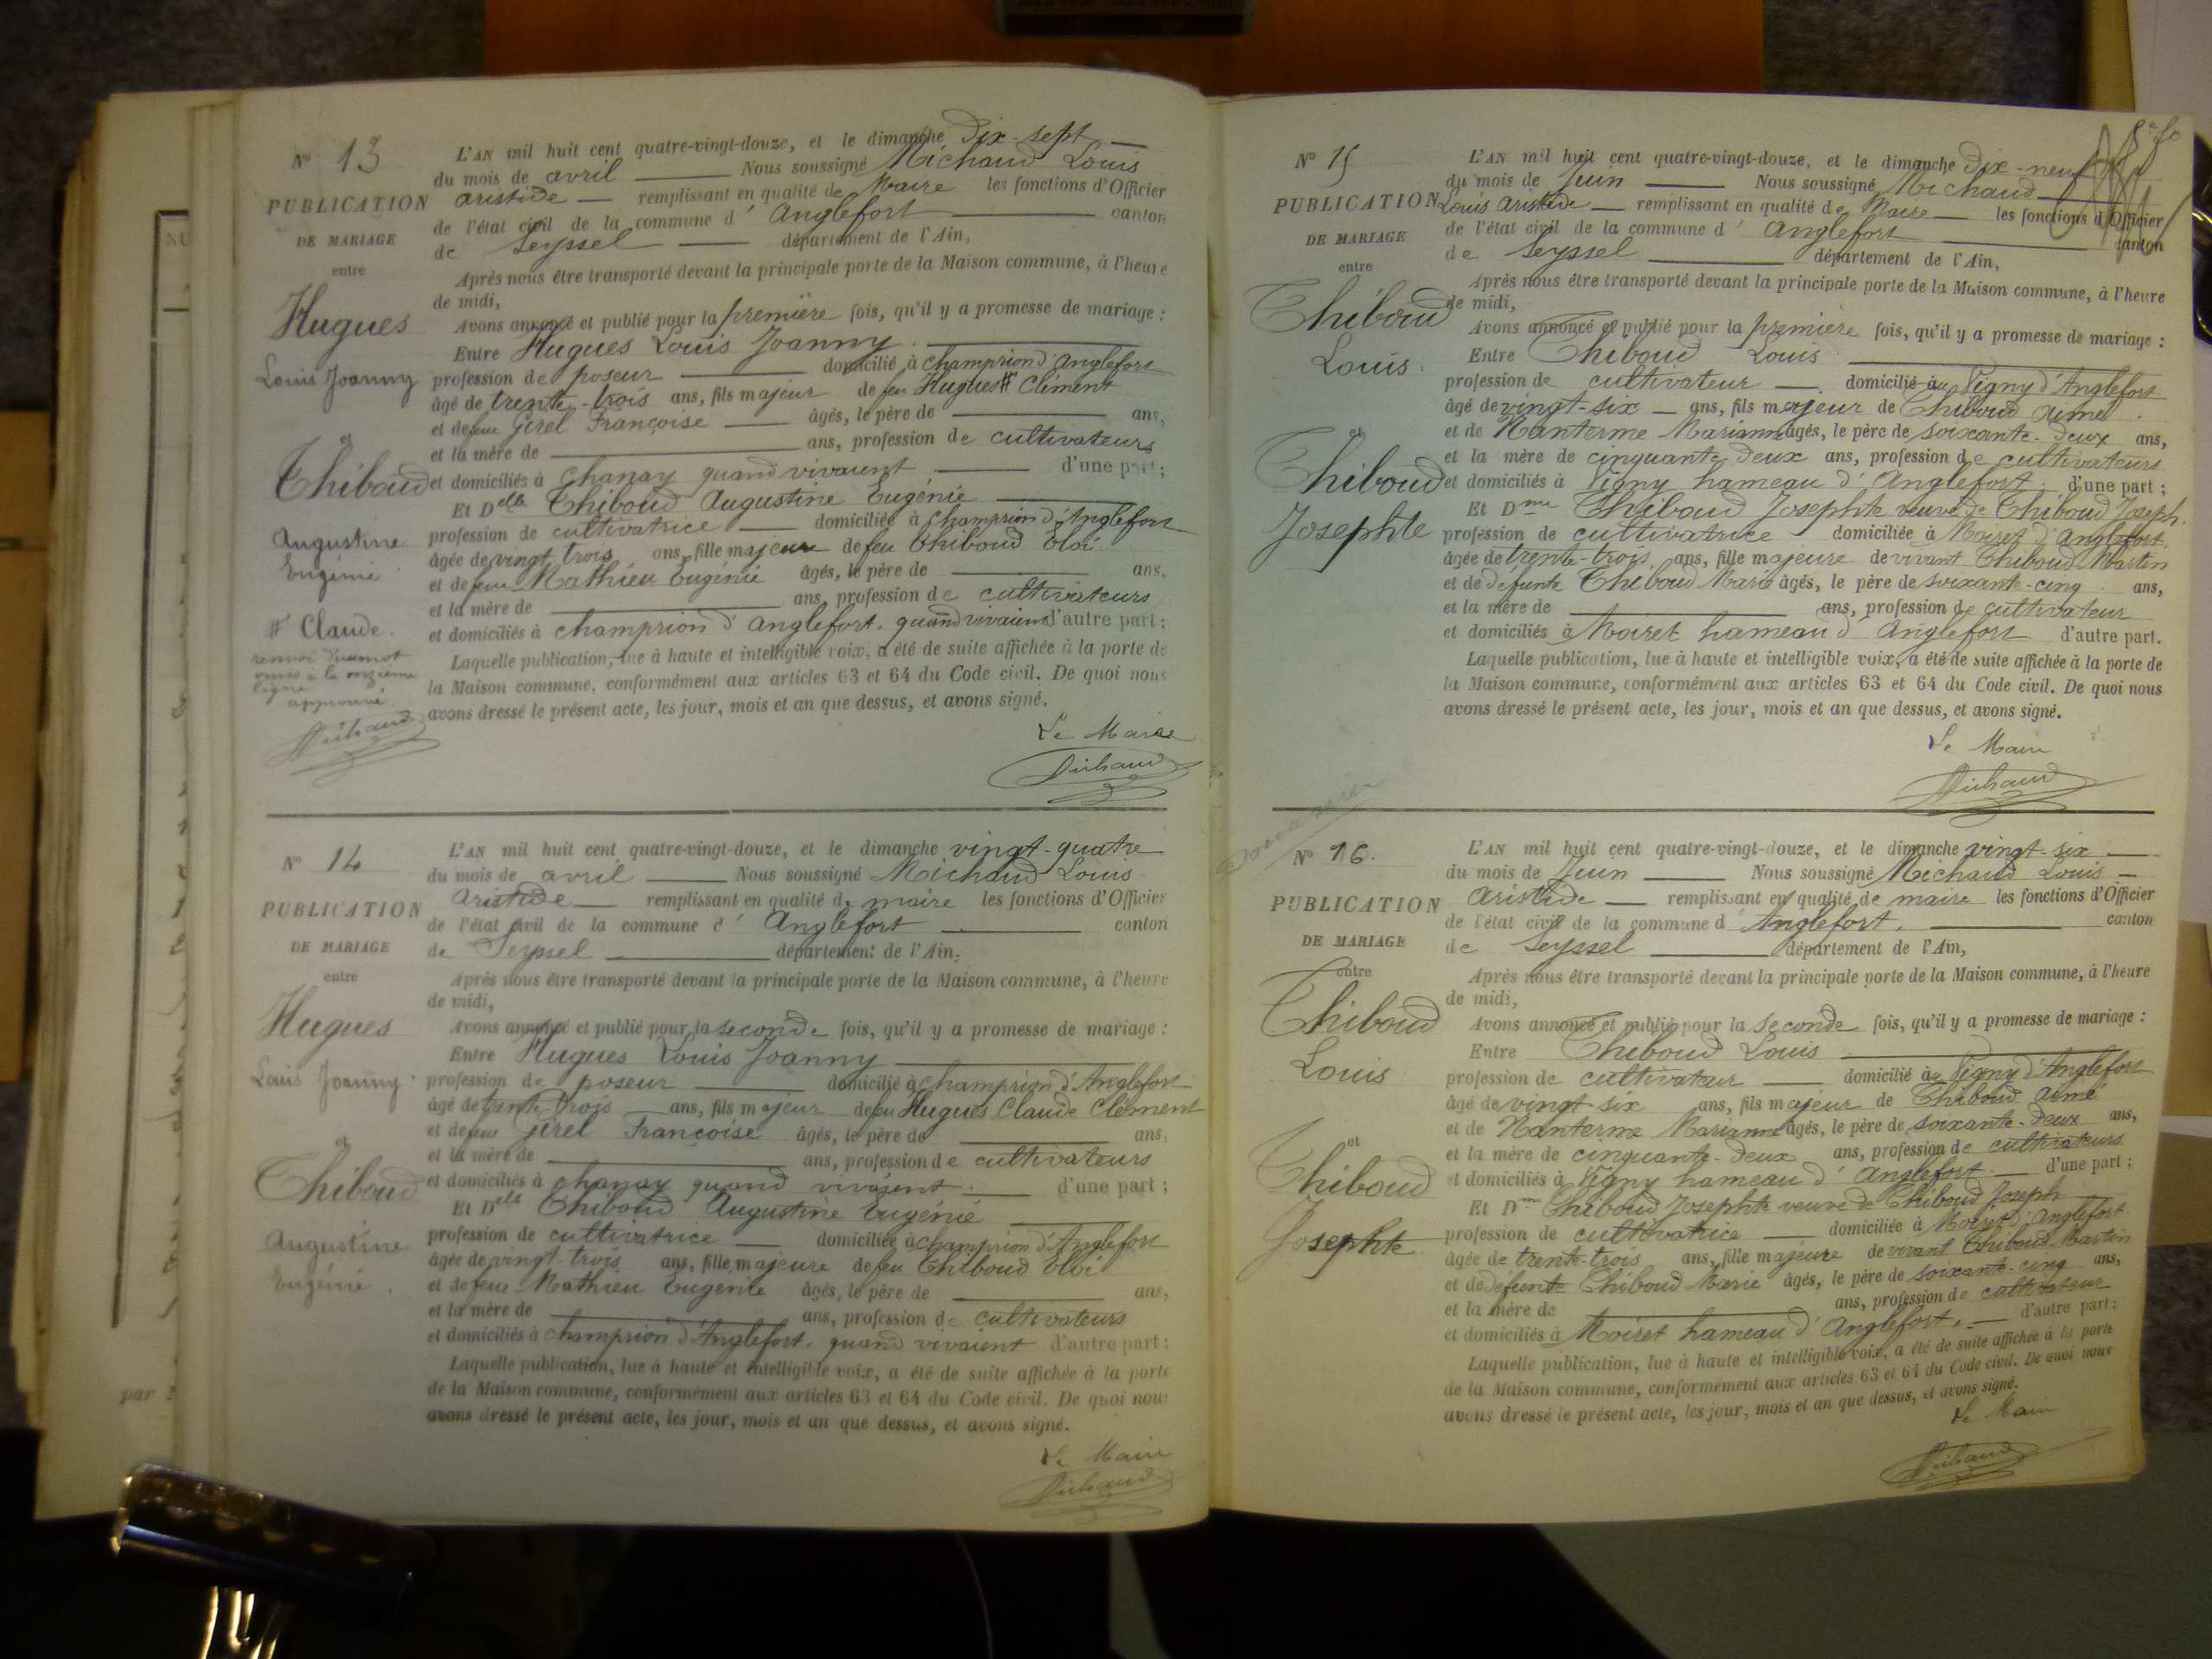 N° 13
PUBLICATION
DE MARIAGE
entre
Hugues
Louis Joanny
et
Thiboud
Augustine
Eugénie
# Claude.
renvoi d'un mot
omis à la onzième
ligne
approuvé
Michaud
L'AN mil huit cent quatre-vingt-douze, et le dimanche Dix-sept
du mois de avril Nous soussigné Michaud Louis
aristide remplissant en qualité de Maire les fonctions d'Officier
de l'état civil de la commune d' Anglefort canton
de Seyssel département de l'Ain,
Après nous être transporté devant la principale porte de la Maison commune, à l'heure
de midi,
Avons annoncé et publié pour la première fois, qu'il y a promesse de mariage :
Entre Hugues Louis Joanny.
profession de poseur domicilié à champrion d'Anglefort
âgé de trente-trois ans, fils majeur de feu Hugues # Clément
et de feue Girel Françoise âgés, le père de ans,
et la mère de ans, profession de cultivateurs
et domiciliés à Chanay quand vivaient d'une part ;
Et Delle Thiboud Augustine Eugénie
profession de cultivatrice domiciliée à champrion d'Anglefort
âgée de vingt trois ans, fille majeur de feu Thiboud Eloi
et de feue Mathieu Eugénie âgés, le père de ans,
et la mère de ans, profession de cultivateurs
et domiciliés à champrion d'Anglefort. quand vivaient d'autre part ;
Laquelle publication, lue à haute et intelligible voix, a été de suite affichée à la porte de
la Maison commune, conformément aux articles 63 et 64 du Code civil. De quoi nous
avons dressé le présent acte, les jour, mois et an que dessus, et avons signé.
Le Maire
Michaud
N° 14
PUBLICATION
DE MARIAGE
entre
Hugues
Louis Joanny.
et
Thiboud
Augustine
Eugénie.
L'AN mil huit cent quatre-vingt-douze, et le dimanche vingt-quatre
du mois de avril Nous soussigné Michaud Louis
Aristide remplissant en qualité de maire les fonctions d'Officier
de l'état civil de la commune d' Anglefort canton
de Seyssel département de l'Ain,
Après nous être transporté devant la principale porte de la Maison commune, à l'heure
de midi,
Avons annoncé et publié pour la seconde fois, qu'il y a promesse de mariage :
Entre Hugues Louis Joanny
profession de poseur domicilié à champrion d'Anglefort
âgé de trente-trois ans, fils majeur de feu Hugues Claude Clément
et de feue Girel Françoise âgés, le père de ans,
et la mère de ans, profession de cultivateurs
et domiciliés à chanay quand vivaient. d'une part ;
Et Delle Thiboud Augustine Eugénie
profession de cultivatrice domiciliée à champrion d'Anglefort
âgée de vingt-trois ans, fille majeure de feu Thiboud Eloi
et de feue Mathieu Eugénie âgés, le père de ans,
et la mère de ans, profession de cultivateurs
et domiciliés à champrion d'Anglefort. quand vivaient d'autre part ;
Laquelle publication, lue à haute et intelligible voix, a été de suite affichée à la porte
de la Maison commune, conformément aux articles 63 et 64 du Code civil. De quoi nous
avons dressé le présent acte, les jour, mois et an que dessus, et avons signé.
Le Maire
Michaud
par
N° 15
PUBLICATION
DE MARIAGE
entre
Thiboud
Louis.
et
Thiboud
Josephte
L'AN mil huit cent quatre-vingt-douze, et le dimanche dix-neuf
du mois de Juin Nous soussigné Michaud
Louis Aristide remplissant en qualité de Maire les fonctions d'Officier
de l'état civil de la commune d' Anglefort canton
de Seyssel département de l'Ain,
Après nous être transporté devant la principale porte de la Maison commune, à l'heure
de midi,
Avons annoncé et publié pour la première fois, qu'il y a promesse de mariage :
Entre Thiboud Louis
profession de cultivateur domicilié au Vigny d'Anglefort
âgé de vingt-six ans, fils majeur de Thiboud aimé
et de Nanterme Marianne âgés, le père de soixante-deux ans,
et la mère de cinquante-deux ans, profession de cultivateurs
et domiciliés à Vigny hameau d'Anglefort. d'une part ;
Et Dme Thiboud Josephte veuve de Thiboud Joseph.
profession de cultivatrice domiciliée à Moiret d'Anglefort.
âgée de trente-trois ans, fille majeure de vivant Thiboud Martin
et de defunte Thiboud Marie âgés, le père de soixante-cinq ans,
et la mère de ans, profession de cultivateur
et domiciliés à Moiret hameau d'Anglefort d'autre part.
Laquelle publication, lue à haute et intelligible voix, a été de suite affichée à la porte de
la Maison commune, conformément aux articles 63 et 64 du Code civil. De quoi nous
avons dressé le présent acte, les jour, mois et an que dessus, et avons signé.
Le Maire
Michaud
N° 16.
PUBLICATION
DE MARIAGE
entre
Thiboud
Louis
et
Thiboud
Josephte
L'AN mil huit cent quatre-vingt-douze, et le dimanche vingt-six
du mois de Juin Nous soussigné Michaud Louis
Aristide remplissant en qualité de maire les fonctions d'Officier
de l'état civil de la commune d' Anglefort. canton
de Seyssel département de l'Ain,
Après nous être transporté devant la principale porte de la Maison commune, à l'heure
de midi,
Avons annoncé et publié pour la seconde fois, qu'il y a promesse de mariage :
Entre Thiboud Louis
profession de cultivateur domicilié au Vigny d'Anglefort
âgé de vingt-six ans, fils majeur de Thiboud Aimé
et de Nanterme Marianne âgés, le père de soixante-deux ans,
et la mère de cinquante-deux ans, profession de cultivateurs
et domiciliés à Vigny hameau d'Anglefort d'une part ;
Et Dme Thiboud Josephte veuve de Thiboud Joseph
profession de cultivatrice domiciliée à Moiret d'Anglefort.
âgée de trente-trois ans, fille majeure de vivant Thiboud Martin
et de defunte Thiboud Marie âgés, le père de soixante-cinq ans,
et la mère de ans, profession de cultivateur
et domiciliés à Moiret hameau d'Anglefort. d'autre part ;
Laquelle publication, lue à haute et intelligible voix, a été de suite affichée à la porte
de la Maison commune, conformément aux articles 63 et 64 du Code civil. De quoi nous
avons dressé le présent acte, les jour, mois et an que dessus, et avons signé.
Le Maire
Michaud